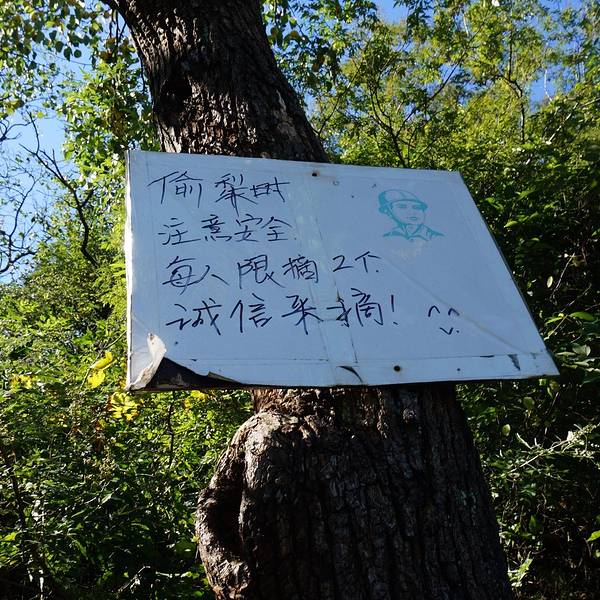 偷梨时
注意安全
每人限摘2个
诚信采摘! ^v^